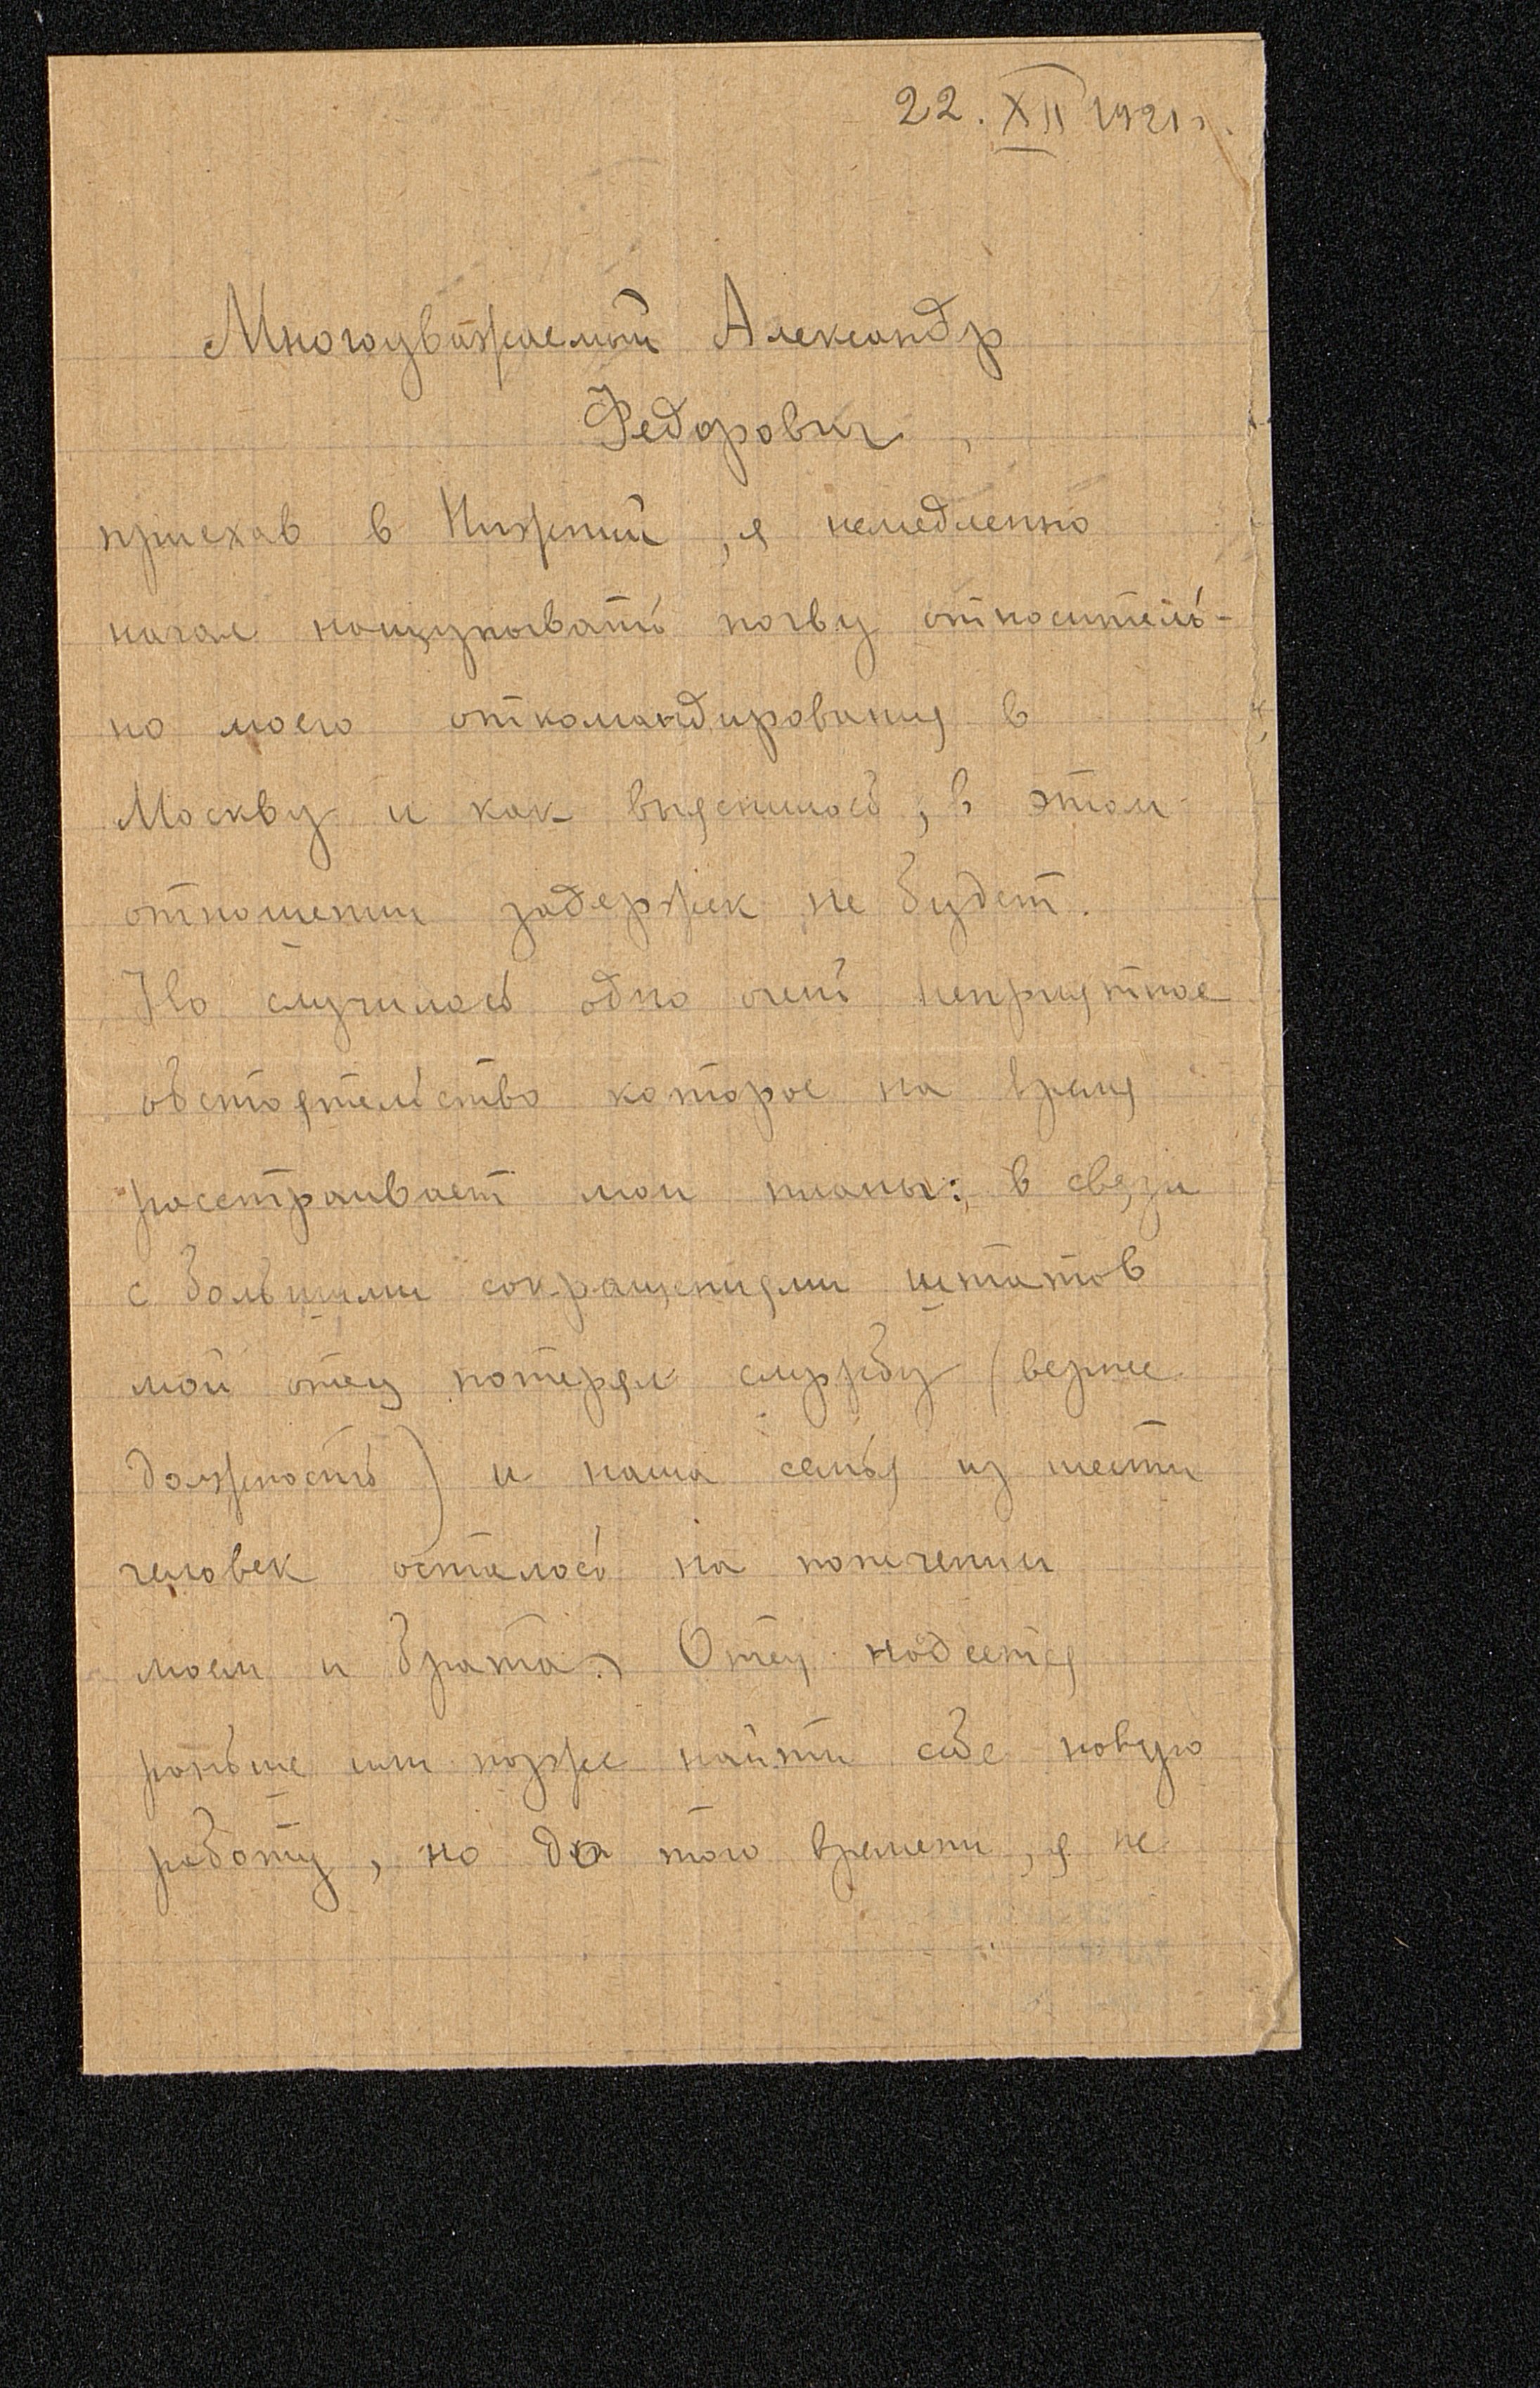 22. XII 1921 г.
Многоуважаемый Александр
Федорович,
приехав в Нижний, я немедленно
начал нащупывать почву относитель-
но моего откомандирования в
Москву и как выяснилось, в этом
отношении задержек не будет.
Но случилось одно очень неприятное
обстоятельство которое на время
расстраивает мои планы: в связи
с большими сокращениями штатов
мой отец потерял службу (вернее
должность) и наша семья из шести
человек осталась на попечении
моем и брата. Отец надеется
раньше или позже найти себе новую
работу, но до того времени, я не